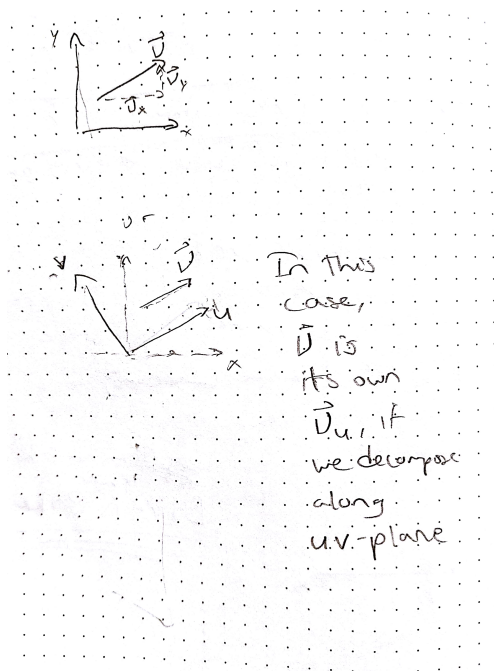 y
v⃗
v⃗y
v⃗x
x
v
v⃗
u
x
In this
case,
v⃗ is
its own
v⃗u, if
we decompose
along
u.v.-plane